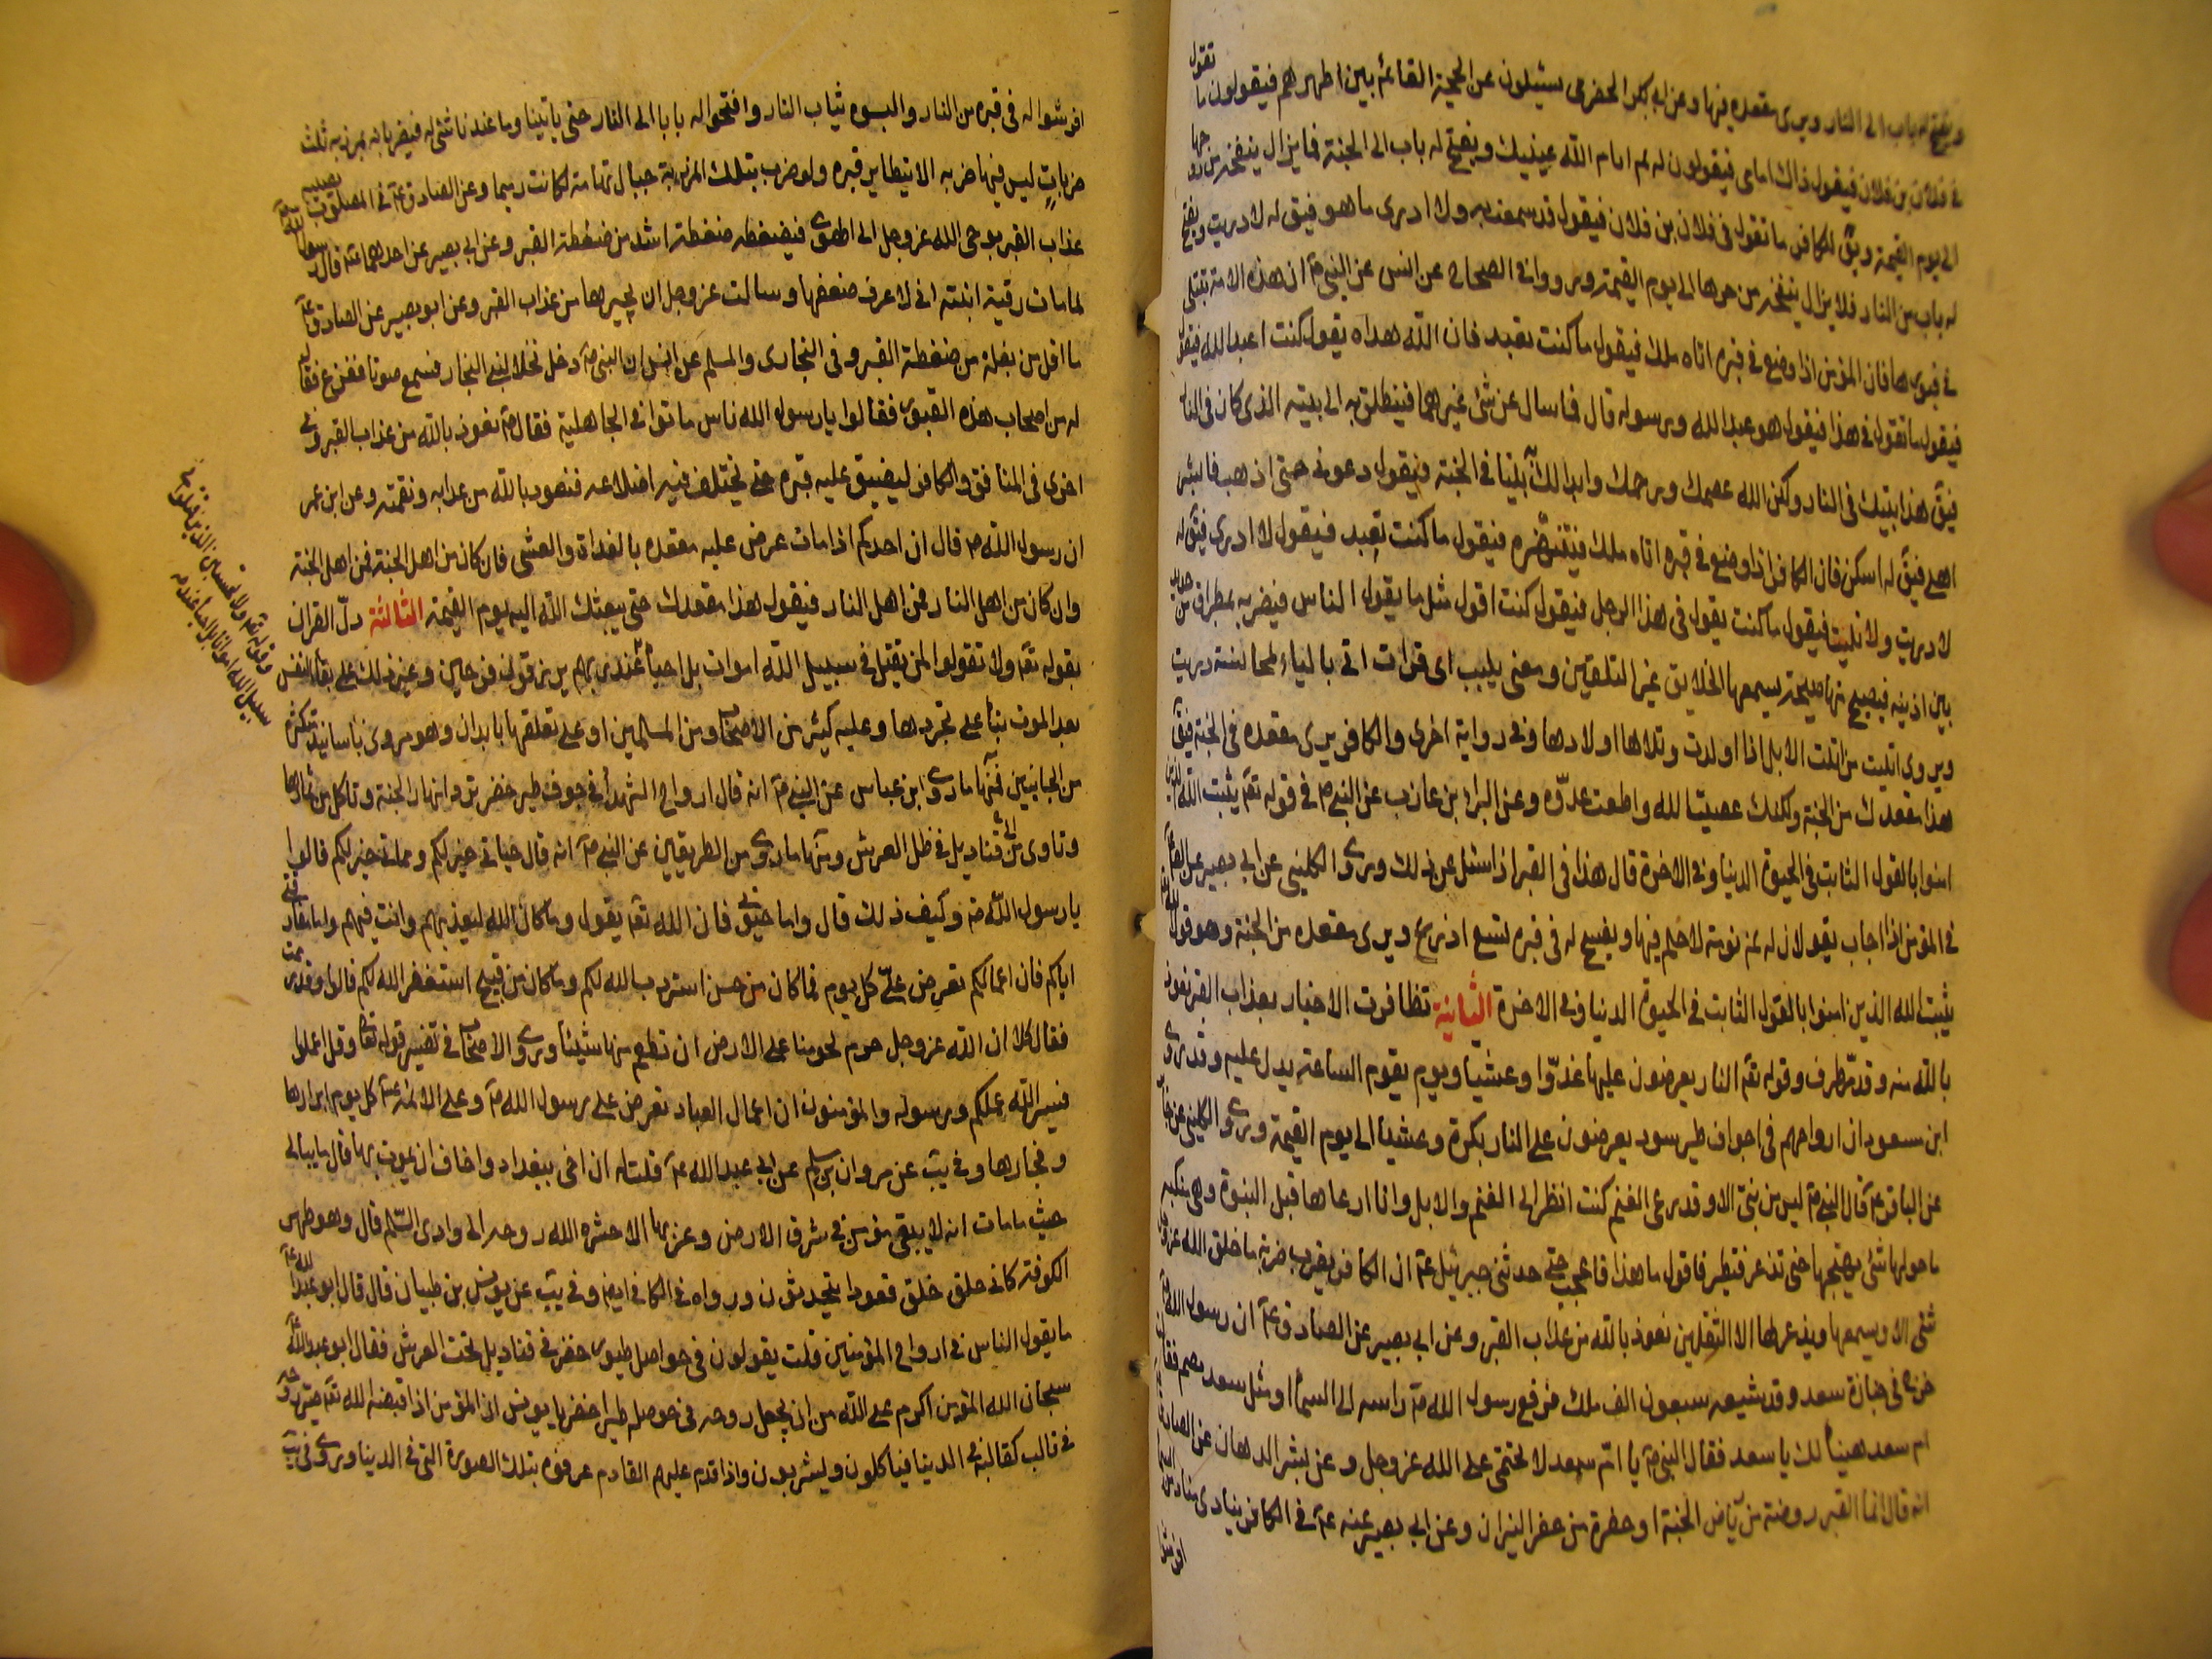 ويفتح له باب الى النار ويرى مقعده فيها وعن ابي بكر الحضرمي يسئلون عن الحجة القائمة بين اظهرهم فيقولون ما تقول
في فلان بن فلان فيقول ذاك امامي فيقولون له نم انام الله عينيك ويفتح له باب الى الجنة فما يزال يتحفه من روحها
الى يوم القيمة ويق للكافر ما تقول في فلان بن فلان فيقول قد سمعت به ولا ادرى ما هو فيق له لا دريت ويفتح
له باب من النار فلا يزال يتحفه من حرها الى يوم القيمة ورووا في الصحاح عن انس عن النبي ص ان هذه الامة تبتلى
في قبورها فان المؤمن اذا وضع في قبره اتاه ملك فيقول ما كنت تعبد فان الله هداه يقول كنت اعبد الله فيقول
فيقول ما تقول في هذا فيقول هو عبد الله ورسوله قال فما سال عن شئ غيرهما فينطلق به الى بيته الذى كان في النار
فيق هذا بيتك في النار ولكن الله عصمك ورحمك وابدلك بيتا في الجنة فيقول دعوني حتى اذهب فابشر
اهلى فيق له اسكن فان الكافر اذا وضع في قبره اتاه ملك فينتهره فيقول ما كنت تعبد فيقول لا ادرى فيق له
لا دريت ولا تليت فيقول ما كنت يقول في هذا الرجل فيقول كنت اقول مثل ما يقول الناس فيضربه بمطراق من حديد
بين اذنيه فيصيح بها صيحة يسمعها الخلايق غير الثقلين ومعنى تليت اى قرات اتى بالياء لمجانسة دريت
ويروى اتليت من اتلت الابل اذا اولدت وتلاها اولادها وفي رواية اخرى والكافر يرى مقعده في الجنة فيق
هذا مقعدك من الجنة ولكنك عصيت الله واطعت عدوه وعن البراء بن عازب عن النبي ص في قوله تعم يثبت الله الذين
امنوا بالقول الثابت في الحيوة الدنيا وفي الاخرة قال هذا في القبر اذا سئل عن ذلك وروى الكليني عن ابي بصير عن الصادق ع
في المؤمن اذا اجاب يقولان له نم نومة لا حلم فيها ويفسح له في قبره تسع اذرع ويرى مقعده من الجنة وهو قول الله تعم
يثبت الله الذين امنوا بالقول الثابت في الحيوة الدنيا وفي الاخرة الثانية تظافرت الاخبار بعذاب القبر نعوذ
بالله منه وقد مر طرف وقوله تعم النار يعرضون عليها غدوا وعشيا ويوم يقوم الساعة يدل عليه وقد روى
ابن مسعود ان ارواحهم في اجواف طير سود يعرضون على النار بكرة وعشيا الى يوم القيمة وروى الكليني عن جابر
عن الباقر ع قال النبي ص ليس من نبي الا وقد رعى الغنم كنت انظر الى الغنم والابل وانا ارعاها قبل النبوة وهي متمكنه
ما حولها شئ يهيجها حتى تذعر فتطير فاقول ما هذا فاعجب حتى حدثني جبرئيل ع ان الكافر يضرب ضربة ما خلق الله عز وجل
شئ الا ويسمعها ويذعر لها الا الثقلين نعوذ بالله من عذاب القبر وعن ابي بصير عن الصادق ع ان رسول الله ص
خرج في جنازة سعد وقد شيعه سبعون الف ملك فرفع رسول الله ص راسه الى السماء ومثل سعد يضم فقالت
ام سعد هنيئا لك يا سعد فقال النبي ص يا ام سعد لا تحتمي على الله عز وجل وعن بشر الدهان عن الصادق
انه قال انما القبر روضة من رياض الجنة او حفرة من حفر النيران وعن ابي بصير عنه ع في الكافر ينادى مناد من السماء
افرشوا
افرشوا له في قبره من النار والبسوه ثياب النار وافتحوا له بابا الى النار حتى ياتينا وما عندنا شئ له فيضربانه بمرزبه ثلث
ضربات ليس فيها ضربه الا يتطاير قبره ولو ضرب بتلك المرزبة جبال تهامة لكانت رميما وعن الصادق ع في المصلوب يصيبه
عذاب القبر يوحى الله عز وجل الى الهوى فيضغطه ضغطة اشد من ضغطة القبر وعن ابي بصير عن احدهما ع قال رسول الله ص
لما ماتت رقية ابنته اني لاعرف ضعفها وسالت عز وجل ان يجيرها من عذاب القبر وعن ابو بصير عن الصادق ع
ما اقل من يفلت من ضغطة القبر وفي البخارى والمسلم عن انس ان النبي ص دخل نخلا لبني النجار فسمع صوتا ففزع فقال
له من اصحاب هذه القبور فقالوا يا رسول الله ناس ماتوا في الجاهلية فقال ص نعوذ بالله من عذاب القبر وفي
اخرى في المنافق والكافر ليضيق عليه قبره حتى يختلف فيه اضلاعه فنعوذ بالله من عذابه ونقمته وعن ابن عمر
ان رسول الله ص قال ان احدكم اذا مات عرض عليه مقعده بالغداة والعشي فان كان من اهل الجنة فمن اهل الجنة
وان كان من اهل النار فمن اهل النار فيقول هذا مقعدك حتى يبعثك الله اليه يوم القيمة الثالثة دل القران
بقوله تعم ولا تقولوا لمن يقتل في سبيل الله اموات بل احياء عند ربهم يرزقون فرحين وغير ذلك على بقاء النفس
بعد الموت بناء على تجردها وعليه كثير من الاصحاب ومن المسلمين او على تعلقها بابدان وهو مروى باسانيد متكثرة
من الجانبين فمنها ما روى ابن عباس عن النبي ص انه قال ارواح الشهداء في جوف طير خضر ترد انهار الجنة وتاكل من ثمارها
وتاوى الى قناديل في ظل العرش ومنها ما روى من الطريقين عن النبي ص انه قال حياتي خير لكم ومماتي خير لكم قالوا
يا رسول الله ص وكيف ذلك قال واما حيوتي فان الله تعم يقول وما كان الله ليعذبهم وانت فيهم واما مفارقتي
اياكم فان اعمالكم تعرض على كل يوم فما كان من حسن استزدت الله لكم وما كان من قبيح استغفر الله لكم قالوا وقد رممت
فقال كلا ان الله عز وجل حرم لحومنا على الارض ان تطعم منها شيئا وروى الاصحاب في تفسير قوله تعالى وقل اعملوا
فسيرى الله عملكم ورسوله والمؤمنون ان اعمال العباد تعرض على رسول الله ص وعلى الائمة ع كل يوم ابرارها
وفجارها وفي يب عن مروان بن مسلم عن ابي عبد الله ع قلت له ان اخي ببغداد واخاف ان يموت بها قال ما يبالي
حيث ما مات انه لا يبقى مؤمن في شرق الارض وغربها الا حشره الله روحه الى وادى السلم قال وهو ظهر
الكوفة كاني حلق حلق قعودا يتحدثون ورواه في الكافي ايضا وفي يب عن يونس بن ظبيان قال قال ابو عبد الله ع
ما يقول الناس في ارواح المؤمنين قلت يقولون في حواصل طيور خضر في قناديل تحت العرش فقال ابو عبد الله ع
سبحان الله المؤمن اكرم على الله من ان يجعل روحه في حوصلة طير اخضر يا يونس ان المؤمن اذا قبضه الله تعم صير روحه
في قالب كقالبه في الدنيا فياكلون ويشربون واذا قدم عليهم القادم عرفوه بتلك الصورة التي في الدنيا وروى في يب
وقوله تعم ولا تحسبن الذين قتلوا في
سبيل الله امواتا بل احياء عند ربهم